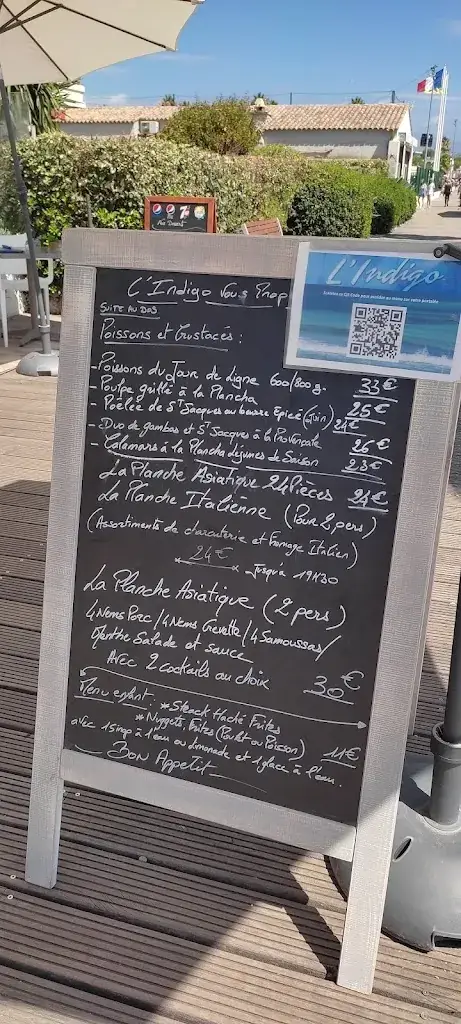 L'Indigo
L'Indigo Vous Prop
SUITE AU DOS
Poissons et Crustacés :
- Poissons du Jour de Ligne 600/800 g. 33€
- Poulpe grillé à la Plancha 25€
Poêlée de St Jacques au beurre Epicé (Juin) 24€
- Duo de gambas et St Jacques à la Provençale 26€
- Calamars à la Plancha légumes de Saison 23€
La Planche Asiatique 24 Pièces 24€
La Planche Italienne (Pour 2 pers)
(Assortiments de charcuterie et Fromage Italien)
24€ Jusqu'à 19H30
La Planche Asiatique (2 pers)
4 Nems Porc / 4 Nems Crevette / 4 Samoussas /
Menthe Salade et sauce
Avec 2 cocktails au choix 30€
Menu enfant : * Steack Haché Frites
* Nuggets, Frites (Poulet ou Poisson) 11€
avec 1 sirop à l'eau ou limonade et 1 glace à l'eau.
Bon Appetit